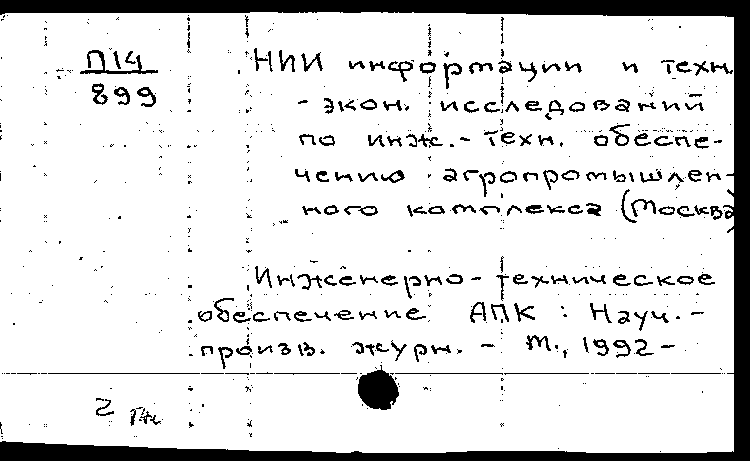 П14
899
НИИ информации и техн.
- экон. исследований
по инж.- техн. обеспе-
чению агропромышлен-
ного комплекса (Москва)
Инженерно-техническое
обеспечение АПК : Науч.-
произв. журн. - М., 1992 -
2